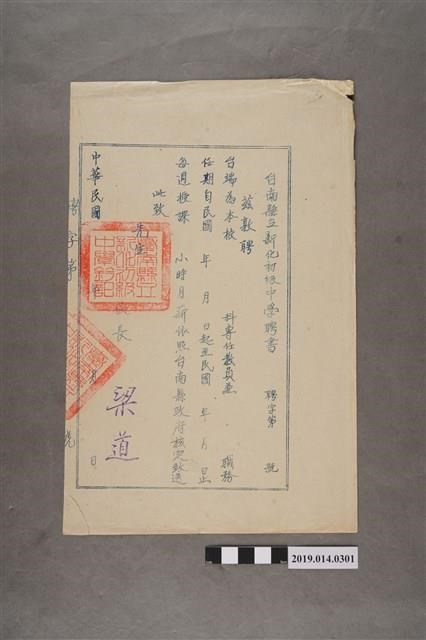 台南縣立新化初級中學聘書 聘字第 號
茲敦聘
台端為本校 科專任教員兼 職務
任期自民國 年 月 日起至民國 年 月 日止
每週授課 小時月薪依照台南縣政府核定致送
此致
先生
長 梁道
中華民國 年 月 日
聘字第 號
2019.014.0301